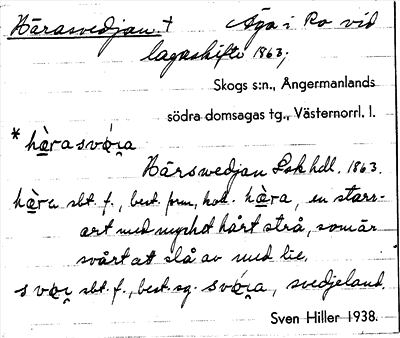 Härasvedjan. † Äga i Ro vid
lagaskifte 1863;
Skogs s:n., Ångermanlands
södra domsagas tg., Västernorrl. l.
Härsvedjan Lsk hdl. 1863.
sbt. f., best. form, koll. en starr-
art med mycket hårt strå, som är
svårt att slå av med lie.
sbt. f., best. sg. svedjeland.
Sven Hiller 1938.